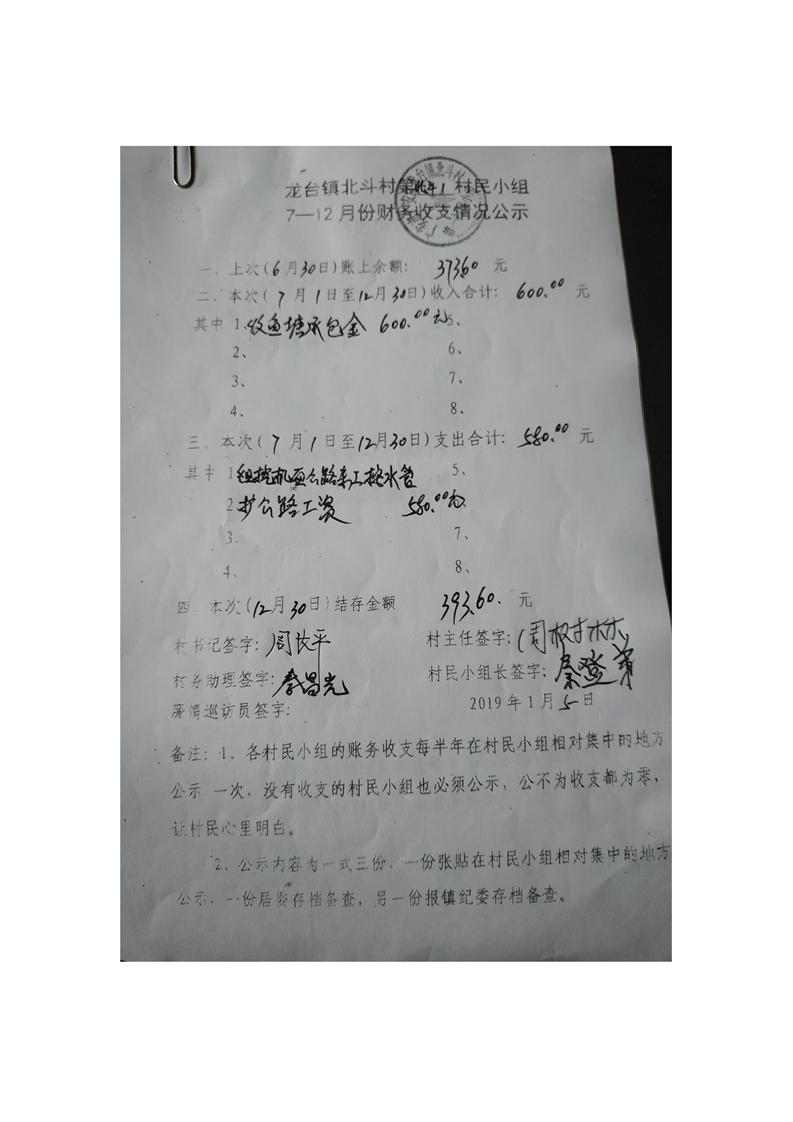 龙台镇北斗村第 1 村民小组
7—12月份财务收支情况公示
一、上次(6月30日)账上余额: 373.60 元
二、本次(7月1日至12月30日)收入合计: 600.00 元
其中 1、收鱼塘承包金 600.00元 5、
2、 6、
3、 7、
4、 8、
三、本次(7月1日至12月30日)支出合计: 580.00 元
其中 1 公路 水管 5、
2 扩公路工资 580.00元
3、 7、
4、 8、
四、本次(12月30日)结存金额 393.60. 元
村书记签字: 平 村主任签字: 周树林
村务助理签字: 秦昌光 村民小组长签字: 秦登
廉情巡访员签字: 2019年1月5日
备注: 1、各村民小组的账务收支每半年在村民小组相对集中的地方
公示一次,没有收支的村民小组也必须公示,公不为收支都为零,
让村民心里明白。
2、公示内容为一式三份、一份张贴在村民小组相对集中的地方
公示,一份居委存档备查,另一份报镇纪委存档备查。